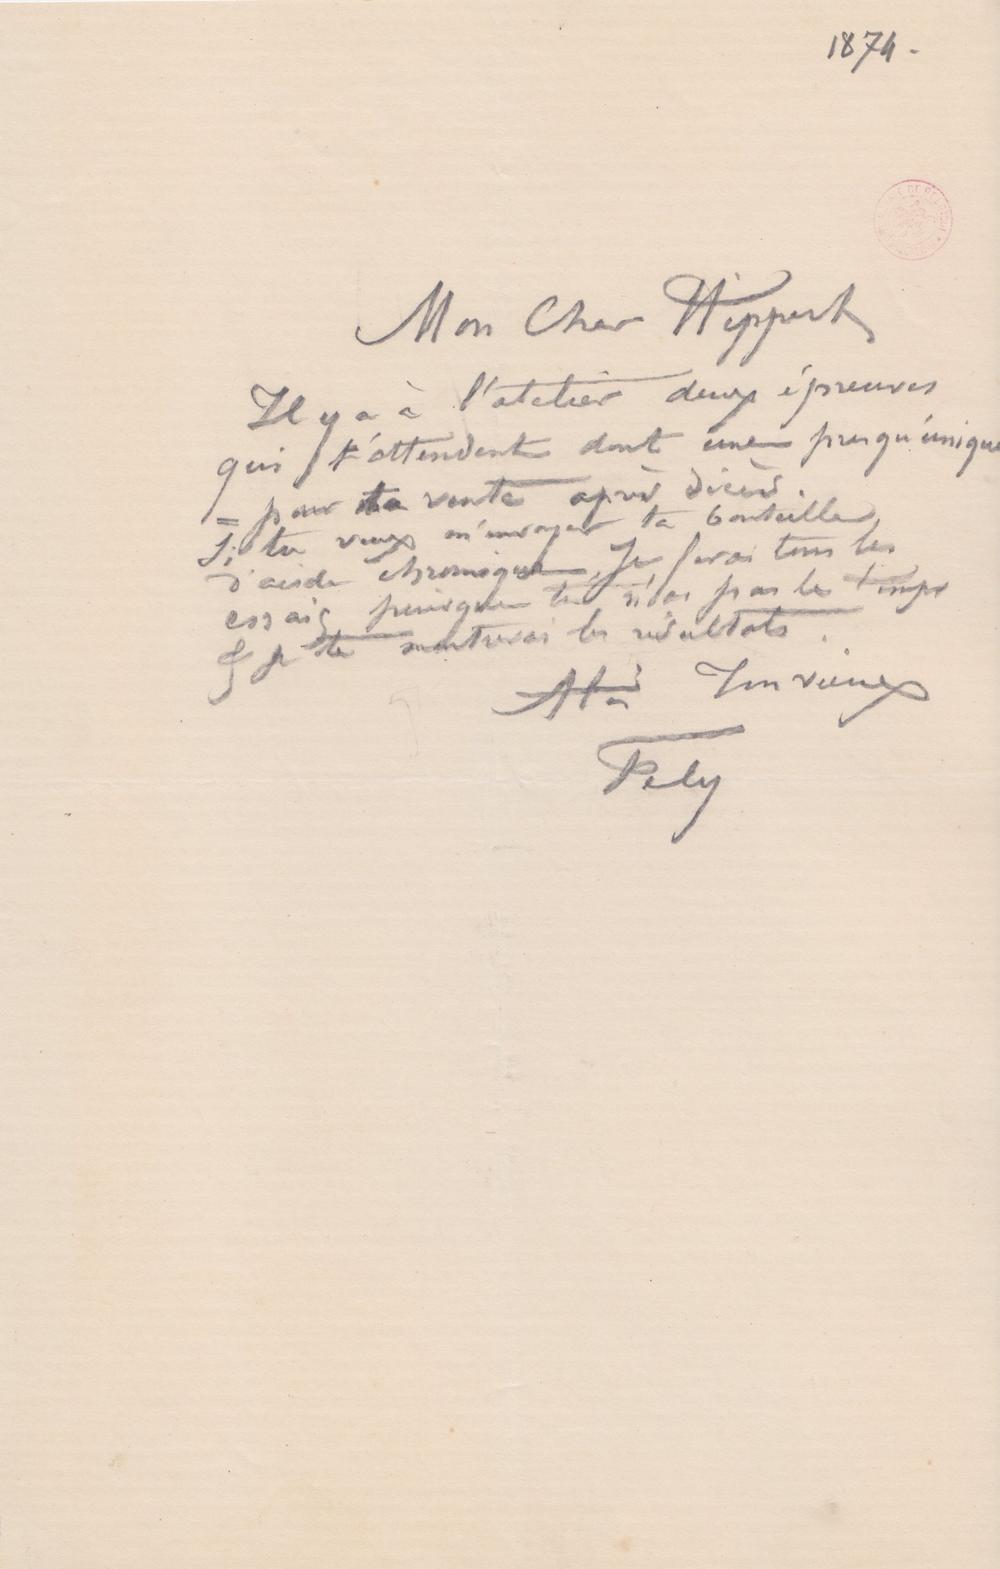 1874.
Mon Cher Hippert
Il y a à l'atelier deux épreuves
qui t'attendent dont une presqu'unique
= pour ta vente après décès.
Si tu veux m'envoyer ta bouteille
d'acide chromique, je ferai tous les
essais puisque tu n'as pas le temps
& je te montrerai les résultats.
Ton vieux
Fely